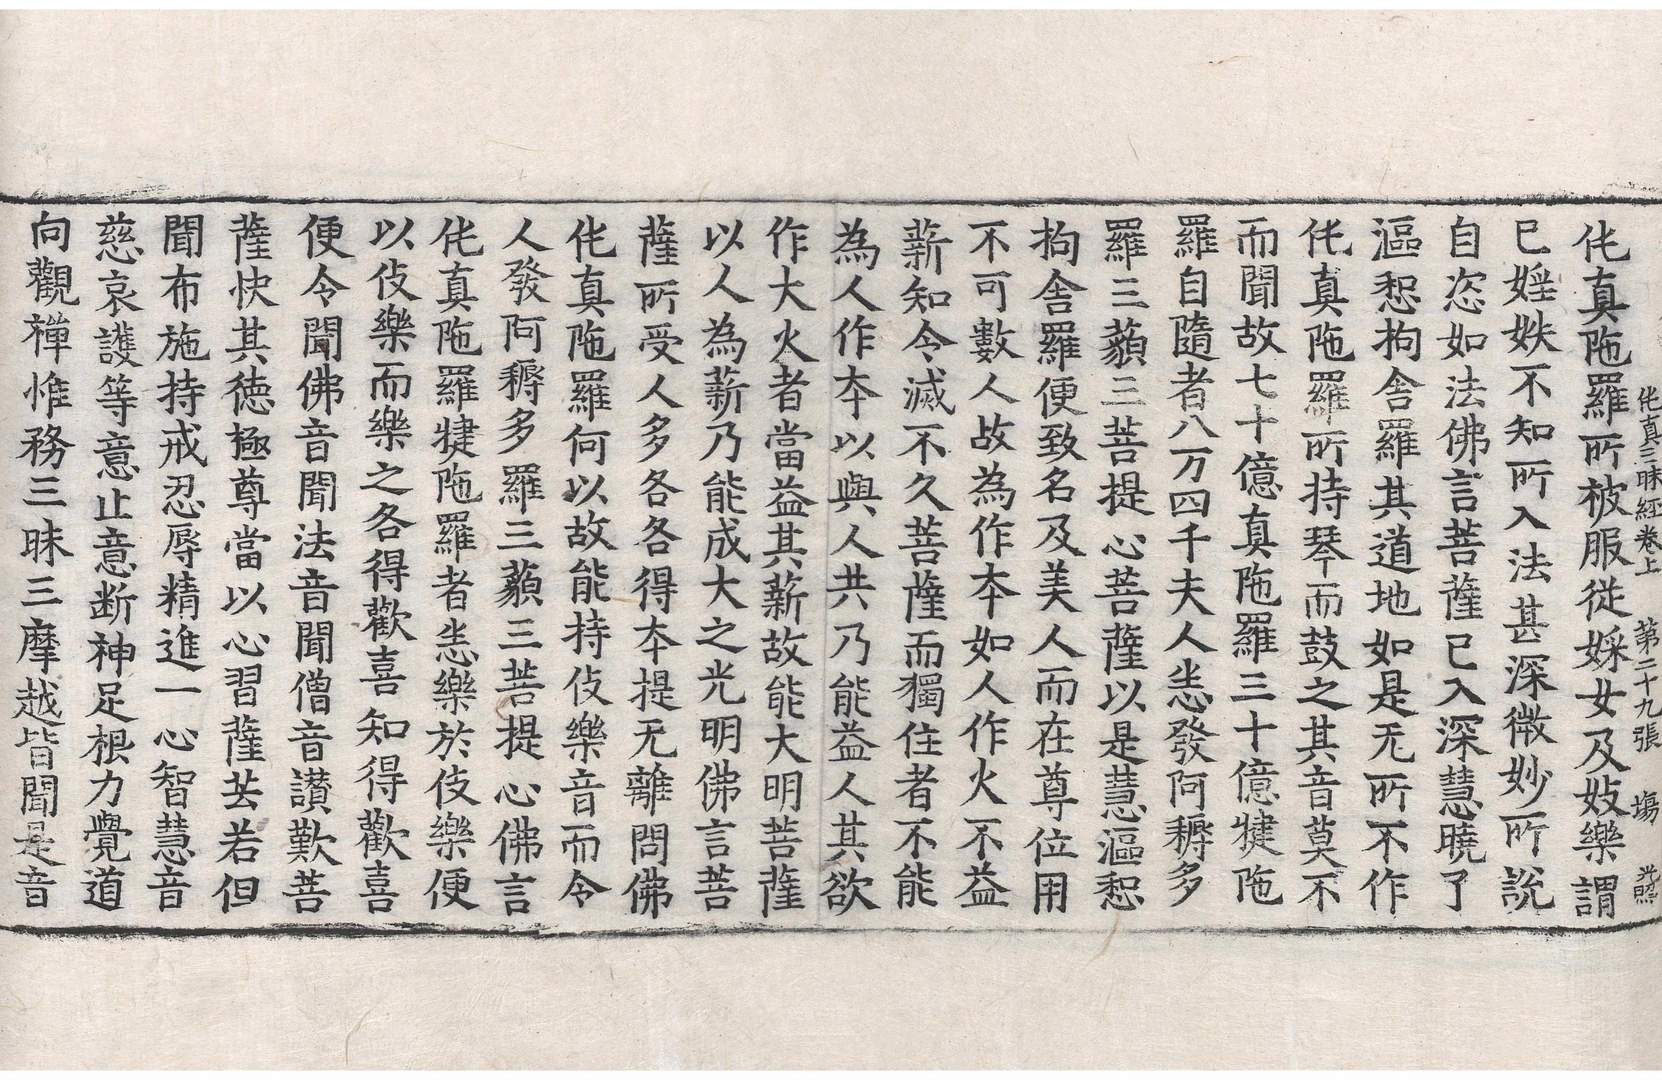 伅真三昧經卷上　第二十九張　塲　光照
伅真陁羅所被服從婇女及妓樂謂
已婬妷不知所入法甚深微妙所說
自恣如法佛言菩薩已入深慧曉了
漚惒拘舍羅其道地如是无所不作
伅真陁羅所持琴而鼓之其音莫不
而聞故七十億真陁羅三十億犍陁
羅自隨者八万四千夫人悉發阿耨多
羅三藐三菩提心菩薩以是慧漚惒
拘舍羅便致名及美人而在尊位用
不可數人故為作夲如人作火不益
薪知令滅不久菩薩而獨住者不能
為人作夲以與人共乃能益人其欲
作大火者當益其薪故能大明菩薩
以人為薪乃能成大之光明佛言菩
薩所受人多各各得夲提无離問佛
伅真陁羅何以故能持伎樂音而令
人發阿耨多羅三藐三菩提心佛言
伅真陁羅犍陁羅者悉樂於伎樂便
以伎樂而樂之各得歡喜知得歡喜
便令聞佛音聞法音聞僧音讃歎菩
薩快其徳極尊當以心習薩芸若但
聞布施持戒忍辱精進一心智慧音
慈哀護等意止意断神足根力覺道
向觀禪惟務三昧三摩越皆聞是音